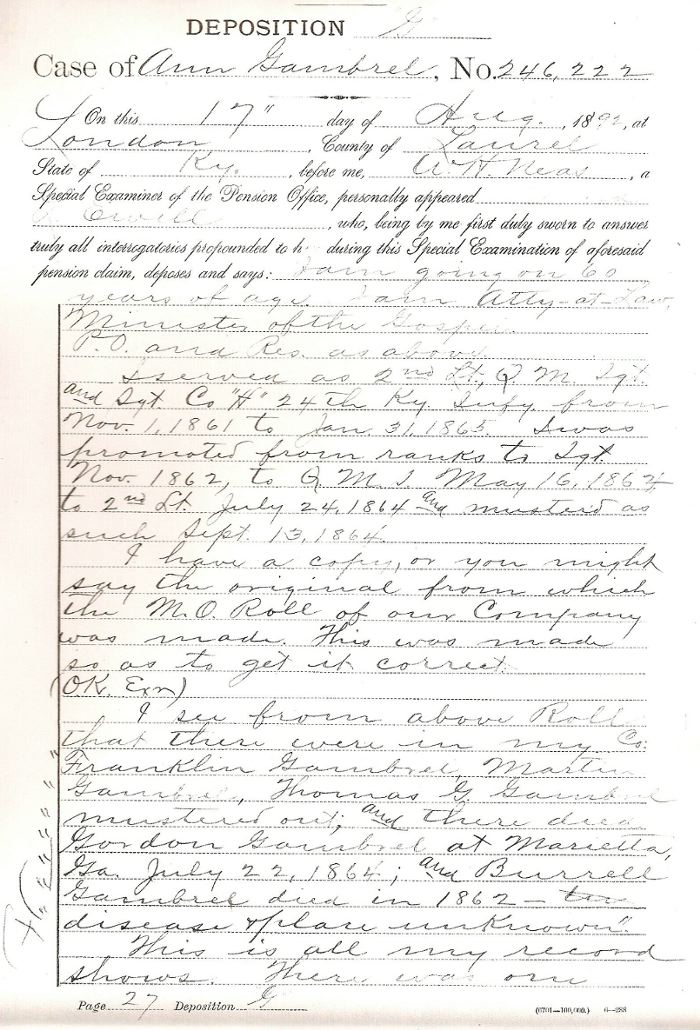 DEPOSITION G
Case of Ann Gambrel, No. 246,222
On this 17" day of Aug., 1892, at
London County of Laurel
State of Ky., before me, W. H. Neas, a
Special Examiner of the Pension Office, personally appeared
Ewell, who, being by me first duly sworn to answer
truly all interrogatories propounded to h during this Special Examination of aforesaid
pension claim, deposes and says: I am going on 60
years of age I am Atty-at-Law,
Minister of the Gospel
P.O. and Res. as above
I served as 2nd Lt., Q M. Sgt.
and Sgt. Co "H" 24th Ky. Infy. from
Nov. 1, 1861 to Jan. 31, 1865. I was
promoted from ranks to Sgt
Nov. 1862, to Q M. S. May 16, 1864
to 2nd Lt. July 24, 1864 and musterd as
such Sept. 13, 1864.
I have a copy, or you might
say the original from which
the M.O. Roll of our Company
was made. This was made
so as to get it correct.
(OK. Exr)
I see from above Roll
that there were in my Co.
Franklin Gambrel, Martin
Gambrel, Thomas G Gambrel
mustered out; and there died
Gordon Gambrel at Marietta,
Ga. July 22, 1864; and Burrell
Gambrel died in 1862 —
disease & place unknown".
This is all my record
shows. There was one
Page 27 Deposition G
(6701—100,000.) 6—288